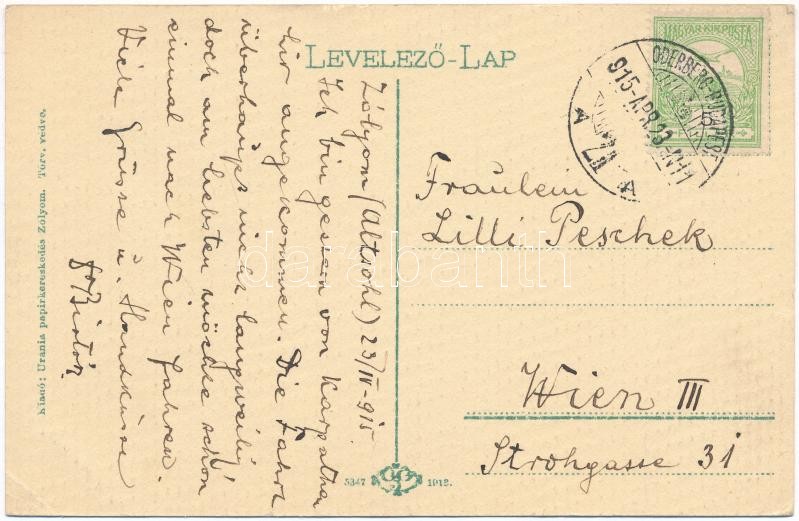 LEVELEZŐ-LAP
Zólyom (Altsohl) 23/IV-915
Ich bin gestern von Karpathen
hier angekommen. Die Fahrt
überhaupt nicht langweilig
doch am liebsten möchte schon
einmal nach Wien fahren.
Viele Grüsse u. Handküsse
MAGYAR KIR. POSTA
ODERBERG-BUDAPEST
915-APR.23
Fräulein
Lilli Peschek
Wien III
Strohgasse 31
Kiadó: Urania papirkereskedés Zólyom. Törv. védve.
5347
1912.
darabanth